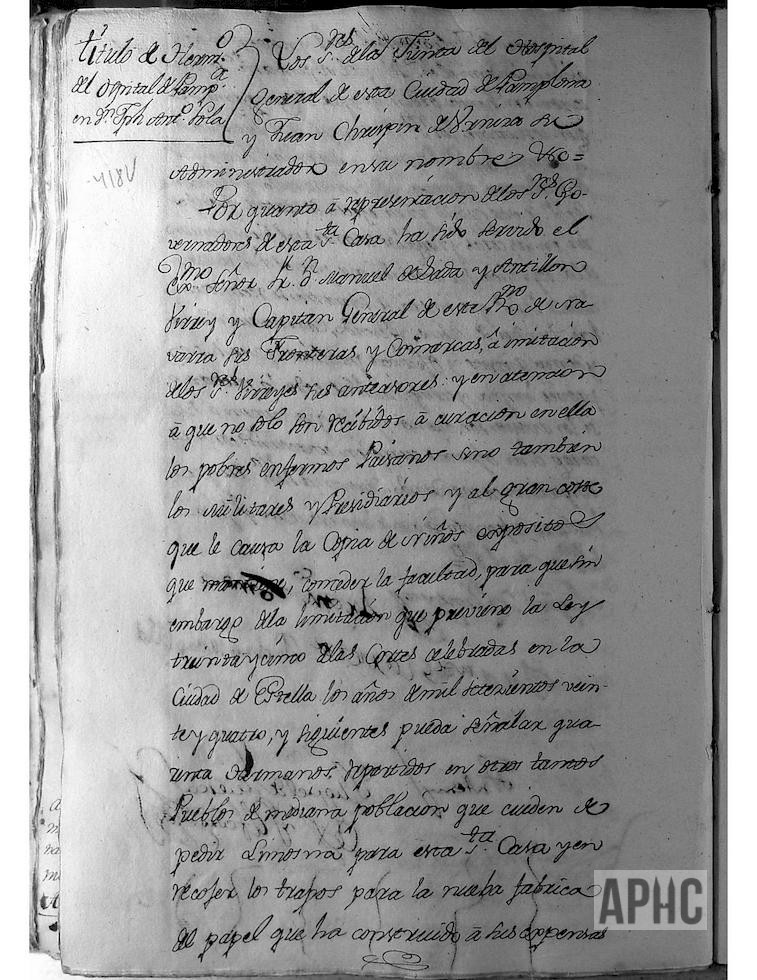 titulo de Herm.o
del Ospital de Pamp.a
en Dn. Jph Anto. Sola
Los S.res de la Junta del Hospital
General de esta Ciudad de Pamplona
y Juan Chrispin de su
Administrador en su nombre &
Por quanto à representacion de los S.res Go-
vernadores de esta S.ta Casa ha sido servido el
Ex.mo Señor Dn. Manuel de Sada y Antillon
Virrey y Capitan General de este R.no de Na-
varra sus Fronteras y Comarcas, à imitación
de los S.res Virreyes sus antecesores: y en atencion
à que no solo son recibidos à curación en ella
los pobres enfermos Paisanos sino tambien
los Militares y Presidiarios y al gran coste
que le causa la Copia de Niños expositos
que mantiene, conceder la facultad, para que sin
embargo dela limitacion que previeno la Ley
treinta y cinco delas Cortes celebradas en la
Ciudad de Estella los años de mil setecientos vein-
te y quatro, y siguientes pueda señalar qua-
renta Hermanos repartidos en otros tantos
Pueblos de mediana poblacion que cuiden de
pedir Limosna para esta S.ta Casa y en
recoser los trapos para la nueba fabrica
del papel que ha construido à sus expensas
APHC